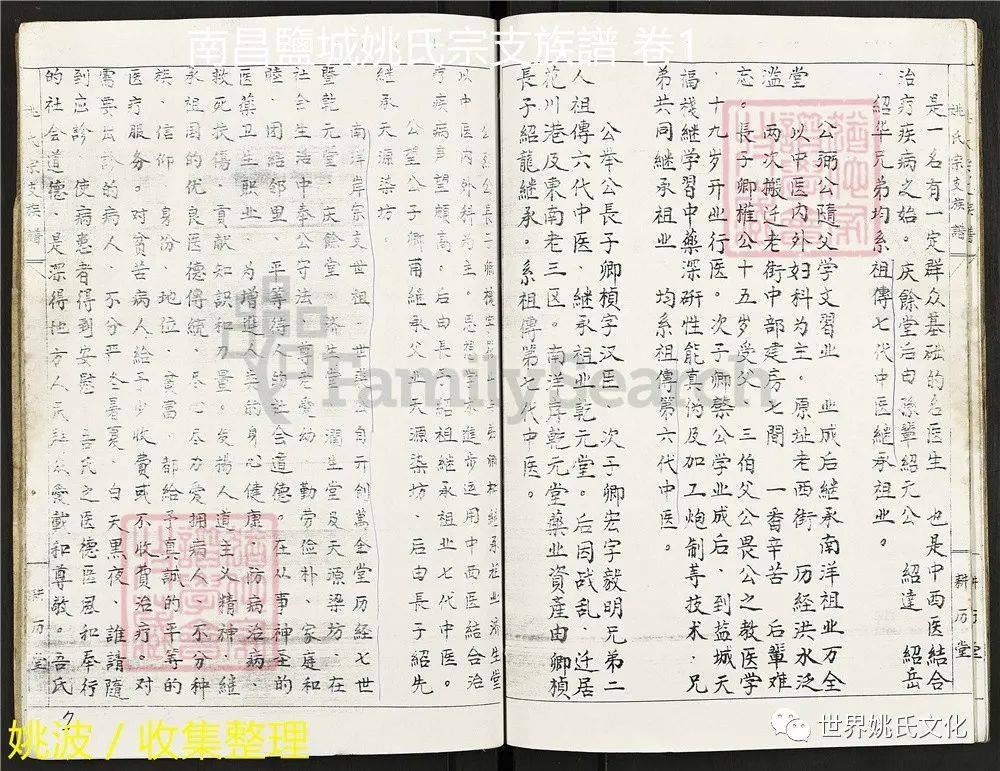 南昌鹽城姚氏宗支族譜 卷1
姚氏宗支族譜
耕历堂
是一名有一定群众基础的名医生 也是中西医结合
治疗疾病之始。庆餘堂后由孫輩紹元公 紹達 紹岳
紹华兄弟均系祖傳七代中医継承祖业。
公弼公隨父学文習业 业成后継承南洋祖业万全
堂 以中医内外妇科为主。原址老西街 历经洪水泛
滥 两次搬迁老街中部建房七間 一番辛苦 后輩难
忘。長子卿權公十五岁受父三伯父公畏公之教医学
十九岁开业行医。次子卿榮公学业成后、到益城天
福棧継学習中藥深研性能真伪及加工炮制等技术、兄
弟共同継承祖业 均系祖傳第六代中医。
公举公長子卿楨字汉臣、次子卿宏字毅明兄弟二
人祖傳六代中医、継承祖业乾元堂。后因战乱、迁居
花川港及東南老三区。南洋岸乾元堂藥业資產由卿楨
長子紹龍継承。系祖傳第七代中医。
以中医内外科为主。思想要求進步运用中西医结合治
疗疾病声望頗高。后由長子紹祖継承祖业七代中医。
公望公子卿甫継承父业天源染坊、后由長子紹先
継承天源染坊
南洋岸宗支世祖一世萬二公自开創萬全堂历经七世
暨乾元堂、庆餘堂 濟生堂 潤生堂及天源梁坊、在
社会生活中奉公守法尊老愛幼、勤劳俭朴、家庭和
睦、团结邻里、平等待人的社会道德。在从事神圣的
医藥卫生职业、为增進人类的身心健康、防病治病、
救死扶傷、貢献知識和力量。发揚人道主义精神、継
承祖国的优良医德傳統、尽心尽力爱拥病人、不分种
族、信仰、身份、地位、贫富、都给予真誠的平等的
医疗服务。对貧苦病人給予少收費或不收費治疗。对
需要出診的病人、不分严冬暑夏、白天黑夜、誰請隨
到应診、使病患者得到安慰 吾氏之医德医風和奉行
的社会道德、是深得地方人民群众愛戴和尊敬。吾氏
姚氏宗支族譜
耕历堂
7
姚波 / 收集整理
世界姚氏文化
FamilySearch